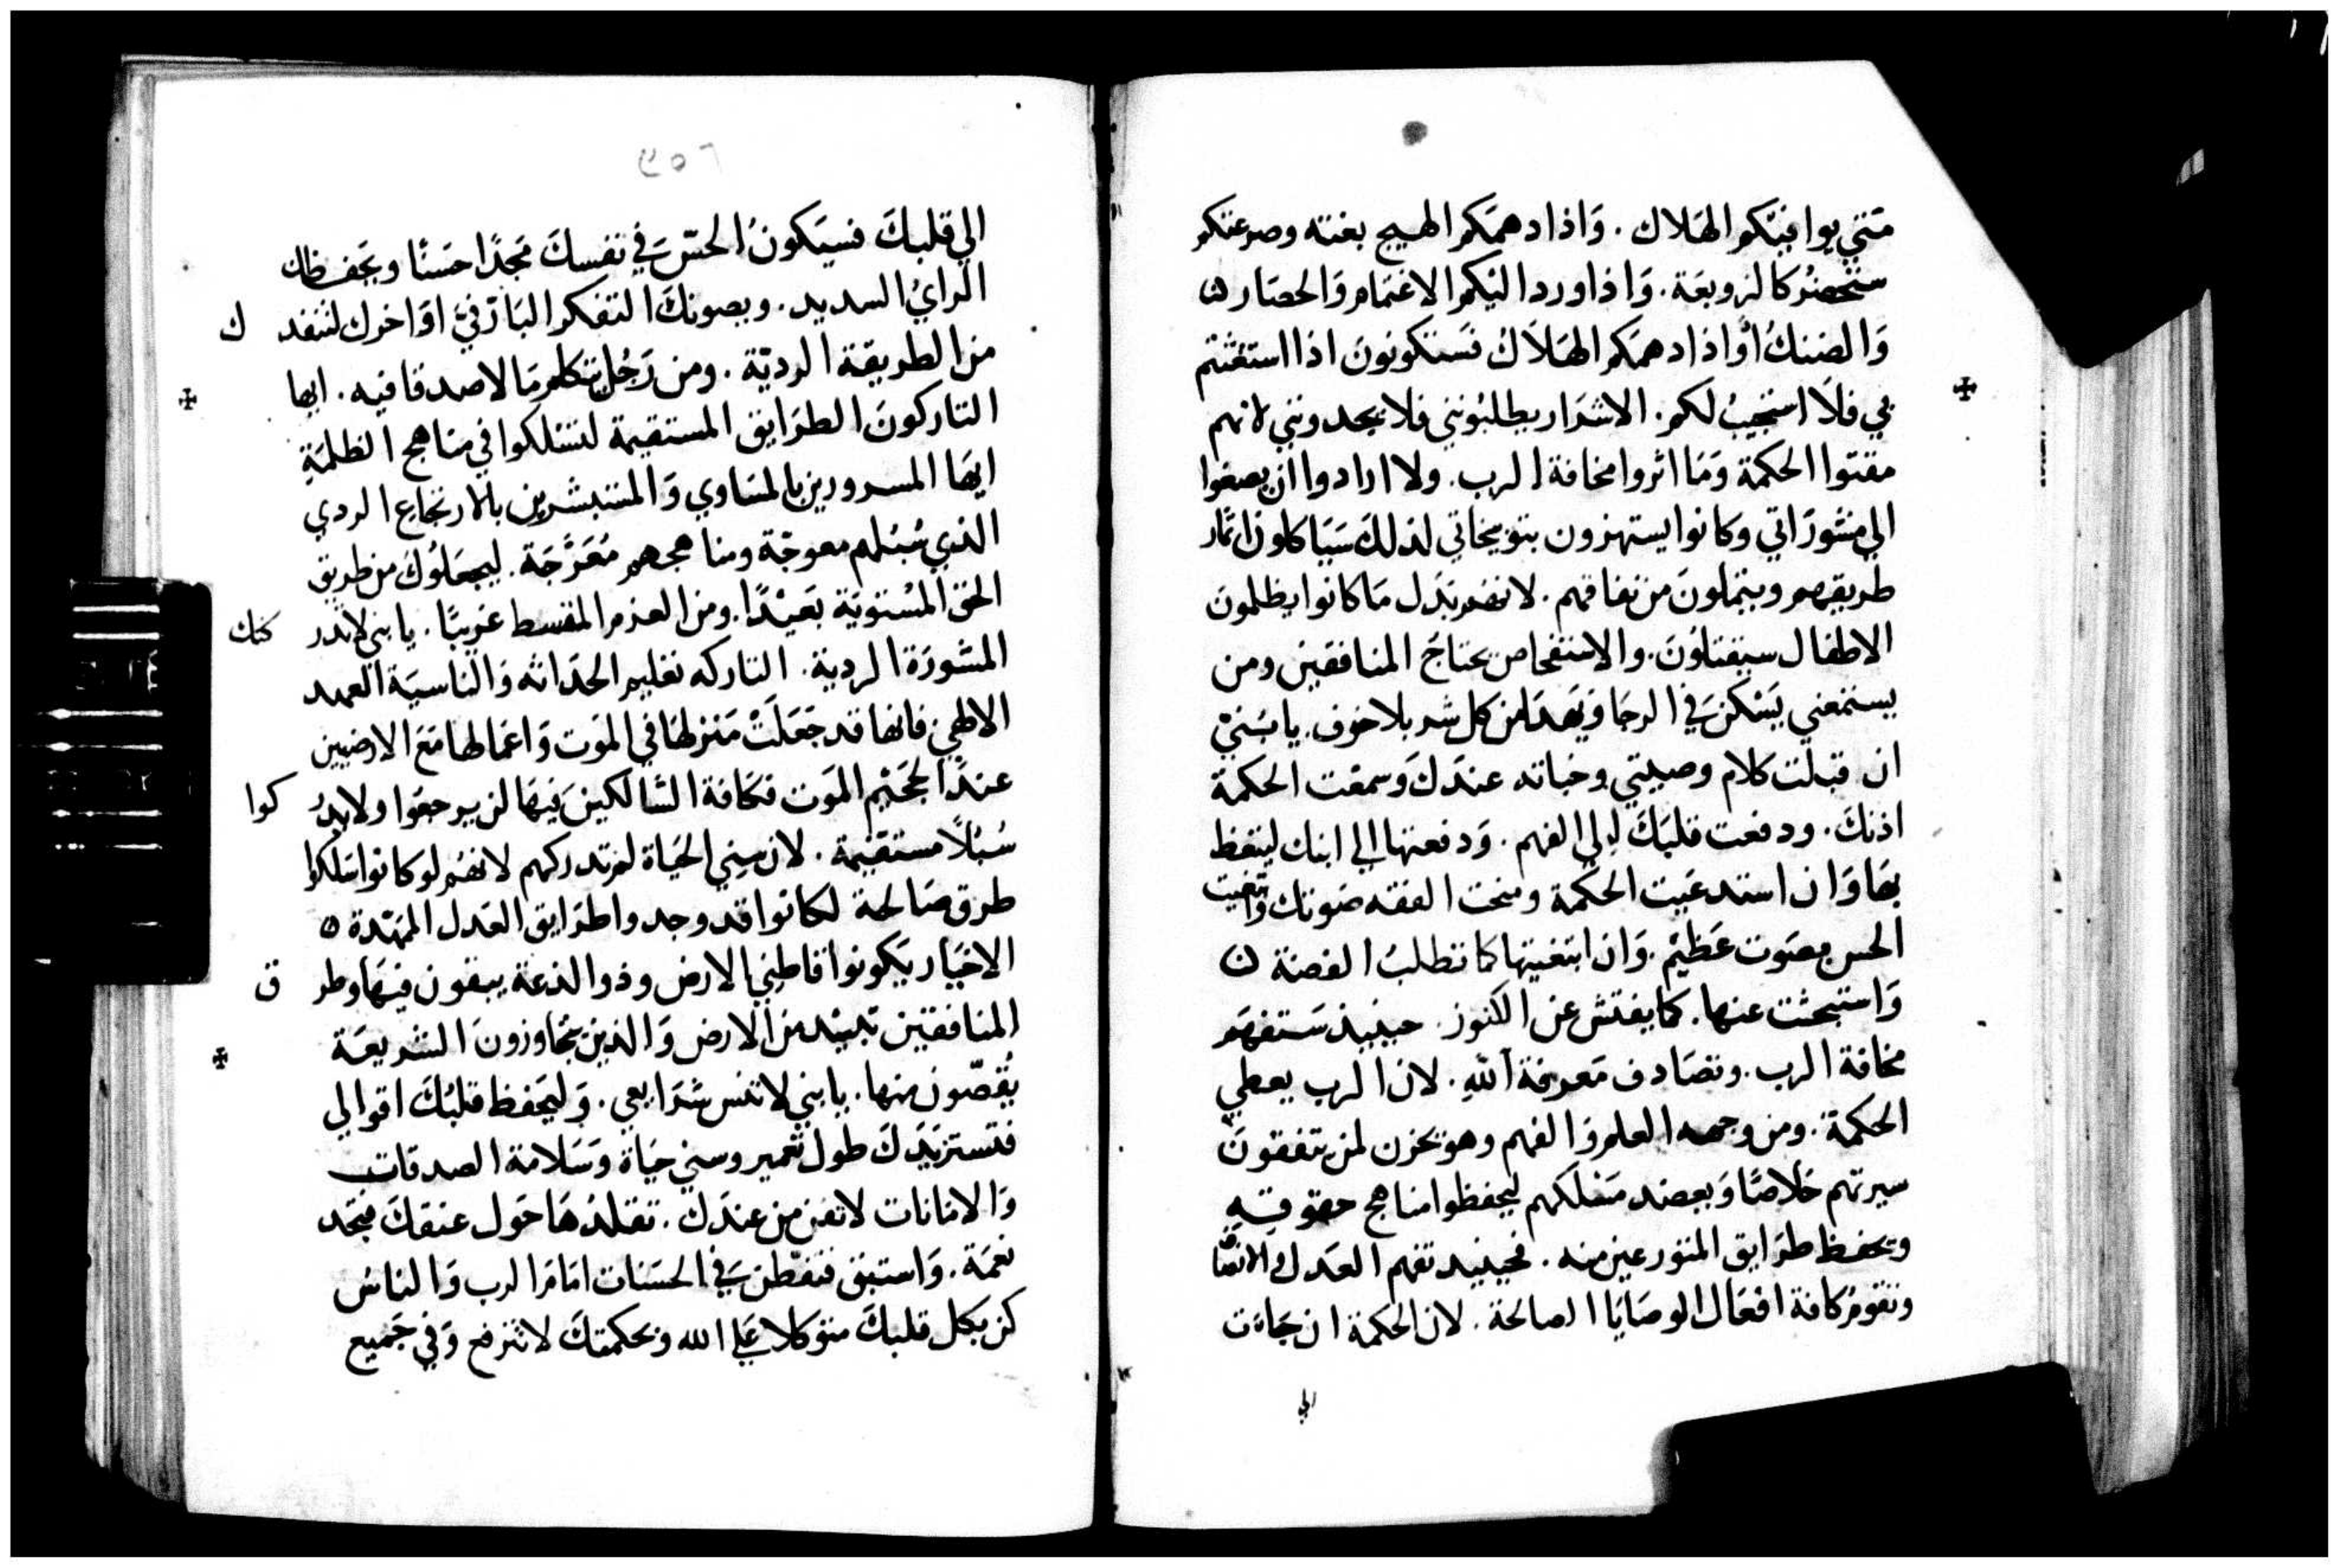 متي يوافيكم الهَلاك . وَاذا دهمَكم الهيج بغته وصرعتكم
ستحضر كالزوبعَة . وَاذا ورد اليكم الاغتمام وَالحصَار ن
وَالضنك اوَاذا دهمَكم الهَلَاكُ فسَتكونونَ اذا استغثتم
بي فلَا استجيبُ لكم . الاشرَار يطلبُونني فلا يجدونني لانهم
مقتوا الحكمة وَمَا اثروا مخافة الرب . ولا ارادوا ان يصغوا
الي مشورَاتي وكانوا يستهزون بتوبيخاتي لذلكَ سَيَاكلون اثمَار
طريقهم ويتملونَ من نفاقهم . لانهم بَدَل مَا كانوا يظلمونَ
الاطفال سيقتلونَ . والاستفحاص يجتاحَ المنافقين ومن
يستمعني يَسْكن في الرجا وَيهدَا من كل شر بلا خوف . يا بُنيّ
ان قبلت كلام وصيتي وخباته عندَكَ وَسمعت الحكمة
اذنكَ . ودفعت قلبَكَ الي الفهم . وَدفعتها الي ابنك ليتعظ
بهَا وَان استدعَيت الحكمة ومنحت الفقه صَوتك وَابتغيت
الحس بصَوت عَظيمْ . وَان ابتغيتها كما تطلبُ الفضة ن
وَاستبحثت عنها . كما يفتش عن الكنوز . حينيذ سَتفهَم
مخافة الرب . وتصَادف مَعرفة اللّهِ . لان الرب يعطي
الحكمة . ومن وجهه العلم وَالفهم وهو يخزن لمن يتفقونَ
سيرتهم خلَاصًا وَيعضد مَسْلكهم ليحفظوا مناهج حقوقهِ
ويحفظ طرَايق المتورعين منه . فحينيد تفهم العَدل والانصَا
وتقوم كافة افعَال الوصَايَا الصالحة . لان الحكمة ان جَاءَت
الي
٢٥٦
الي قلبكَ فسيَكونُ الحسّ في نفسكَ مَجدًا حَسَنًا ويحَفظك
الرايُ السديد . ويصونكَ التفكر البَارّ في اوَاخرك لتنقد ك
من الطريقة الرديّة . ومن رَجُلٍ يتكلم مَا لا صدقا فيه . ايها
التاركونَ الطرَايق المستقيمة لتسْلكوا في مناهج الظلمَةِ
ايهَا المسرورين بالمسَاوي وَالمستبشرين بالارتجاع الردي
الذي سُبُلهم معوجّة ومناهجهم مُعَرَّجَة . ليجعَلُوكَ من طريق
الحق المُسْتويَة بَعيْدًا . ومن العزم المقسط غريبًا . يا بني لا تدر كنك
المشورَة الردية . التاركه تعليم الحدَاثه وَالناسيَة العهد
الالهي فانها قد جَعَلَتْ مَنزلهَا في المَوت وَاعمالها مَعَ الارضيين
عندَ الجحَيْم المَوت فكَافة السَّالكينَ فيهَا لن يرجعُوا ولا يدرُ كوا
سُبُلًا مستقيْمة . لان سِني الحَيَاة لم تدركهم لانهُم لو كانوا سَلكوا
طرق صَالحة لكانوا قد وجدوا طرَايق العَدل الممَهّدة ن
الاخيَار يَكونوا قاطِني الارض وذوا الدعة يبقون فيهَا وطر ق
المنافقيْن تبيْد من الارض وَالذين يتجَاوزونَ الشريعَة
يُقصّون منها . يا بني لا تنس شرَايعي . وَليَحفظ قلبُكَ اقوالي
فتستزيَدَكَ طول تعمير وسني حيَاة وَسَلامة الصدقات
وَالامَانات لا تفن من عندَك . تقلدْهَا حَول عنقكَ فتجَد
نعمَة . وَاستبق فتفطن في الحسَنات امَامَ الرب وَالناسُ
كن بكل قلبكَ متوكلا عَلي الله وبحكمتكَ لا تترفع وَفي جَميع